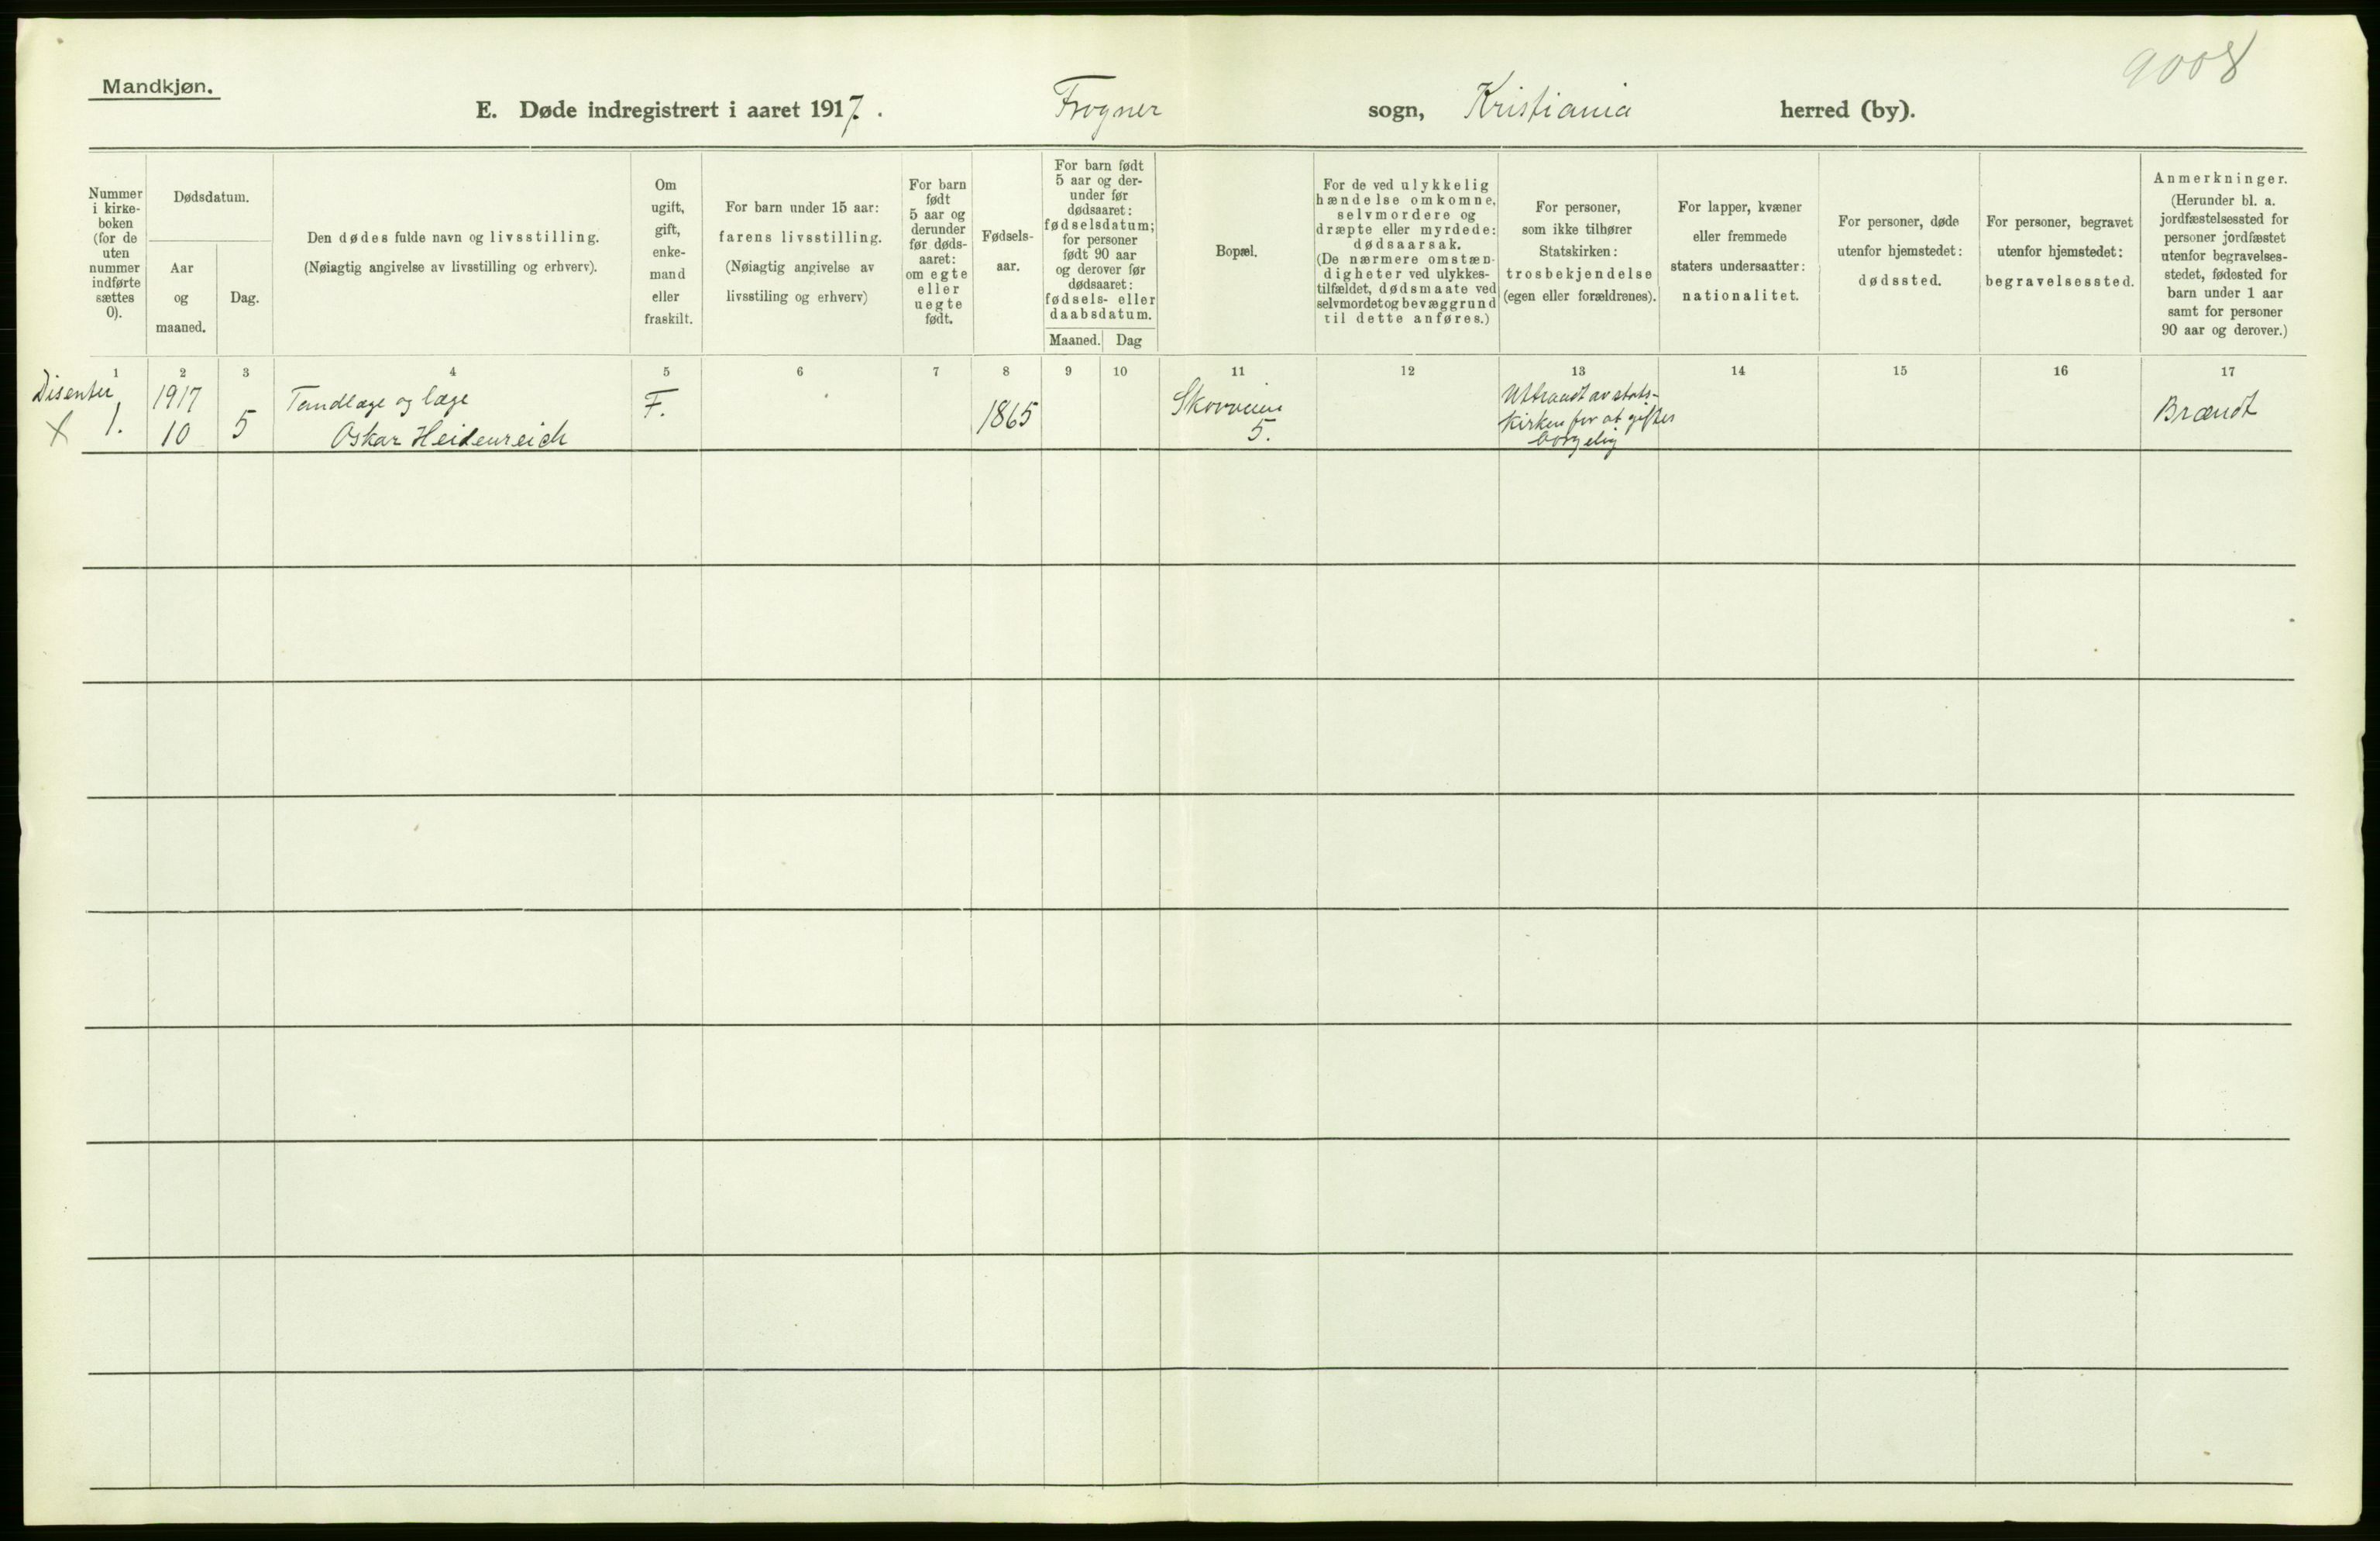 9008
Mandkjøn.
E. Døde indregistrert i aaret 1917. Frogner sogn, Kristiania herred (by).
Nummer
i kirke-
boken
(for de
uten
nummer
indførte
sættes
0).
Dødsdatum.
Aar
og
maaned.
Dag.
Den dødes fulde navn og livsstilling.
(Nøiagtig angivelse av livsstilling og erhverv).
Om
ugift,
gift,
enke-
mand
eller
fraskilt.
For barn under 15 aar:
farens livsstilling.
(Nøiagtig angivelse av
livsstiling og erhverv)
For barn
født
5 aar og
derunder
før døds-
aaret:
om egte
eller
uegte
født.
Fødsels-
aar.
For barn født
5 aar og der-
under før
dødsaaret:
fødselsdatum;
for personer
født 90 aar
og derover før
dødsaaret:
fødsels- eller
daabsdatum.
Maaned. Dag
Bopæl.
For de ved ulykkelig
hændelse omkomne,
selvmordere og
dræpte eller myrdede:
dødsaarsak.
(De nærmere omstæn-
digheter ved ulykkes-
tilfældet, dødsmaate ved
selvmordet og bevæggrund
til dette anføres.)
For personer,
som ikke tilhører
Statskirken:
trosbekjendelse
(egen eller forældrenes).
For lapper, kvæner
eller fremmede
staters undersaatter:
nationalitet.
For personer, døde
utenfor hjemstedet:
dødssted.
For personer, begravet
utenfor hjemstedet:
begravelsessted.
Anmerkninger.
(Herunder bl. a.
jordfæstelsessted for
personer jordfæstet
utenfor begravelses-
stedet, fødested for
barn under 1 aar
samt for personer
90 aar og derover.)
1 2 3 4 5 6 7 8 9 10 11 12 13 14 15 16 17
Disenter
x 1.
1917
10
5
Tandlæge og læge
Oskar Heidenreich
F.
1865
Skovveien
5.
Uttraadt av stats-
kirken for at giftes
borgelig
Brændt